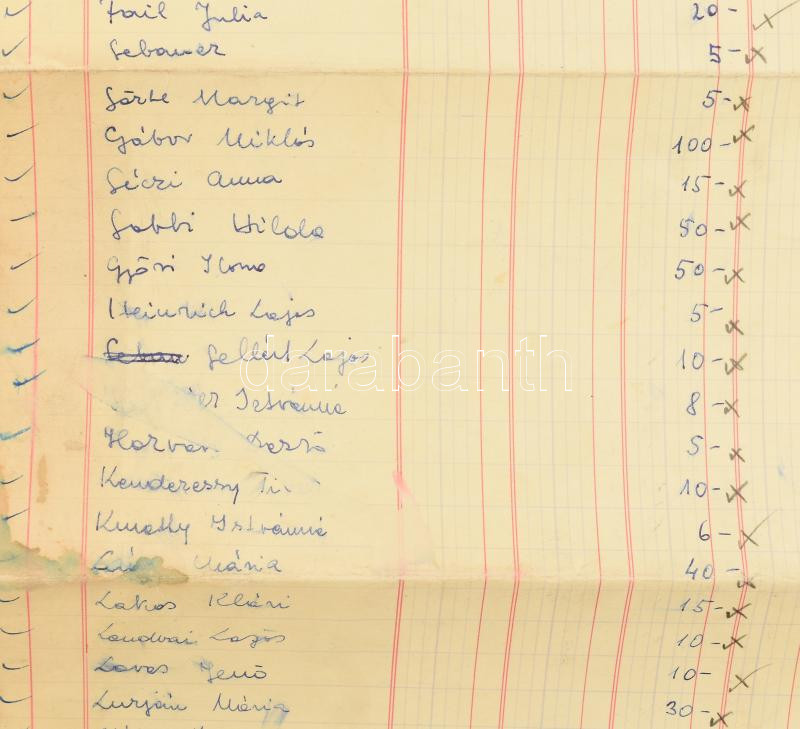 Fail Julia 20-
Gebauer 5-
Görbe Margit 5-
Gábor Miklós 100-
Géczi Anna 15-
Gobbi Hilda 50-
Győri Ilona 50-
Heinrich Lajos 5-
Gellért Lajos 10-
Istvánné 8-
5-
Kenderessy 10-
Kmetty Istvánné 6-
Mária 40-
Lakos Klári 15-
Lendvai Lajos 10-
Lovas Jenő 10-
Lurján Mária 30-
darabanth